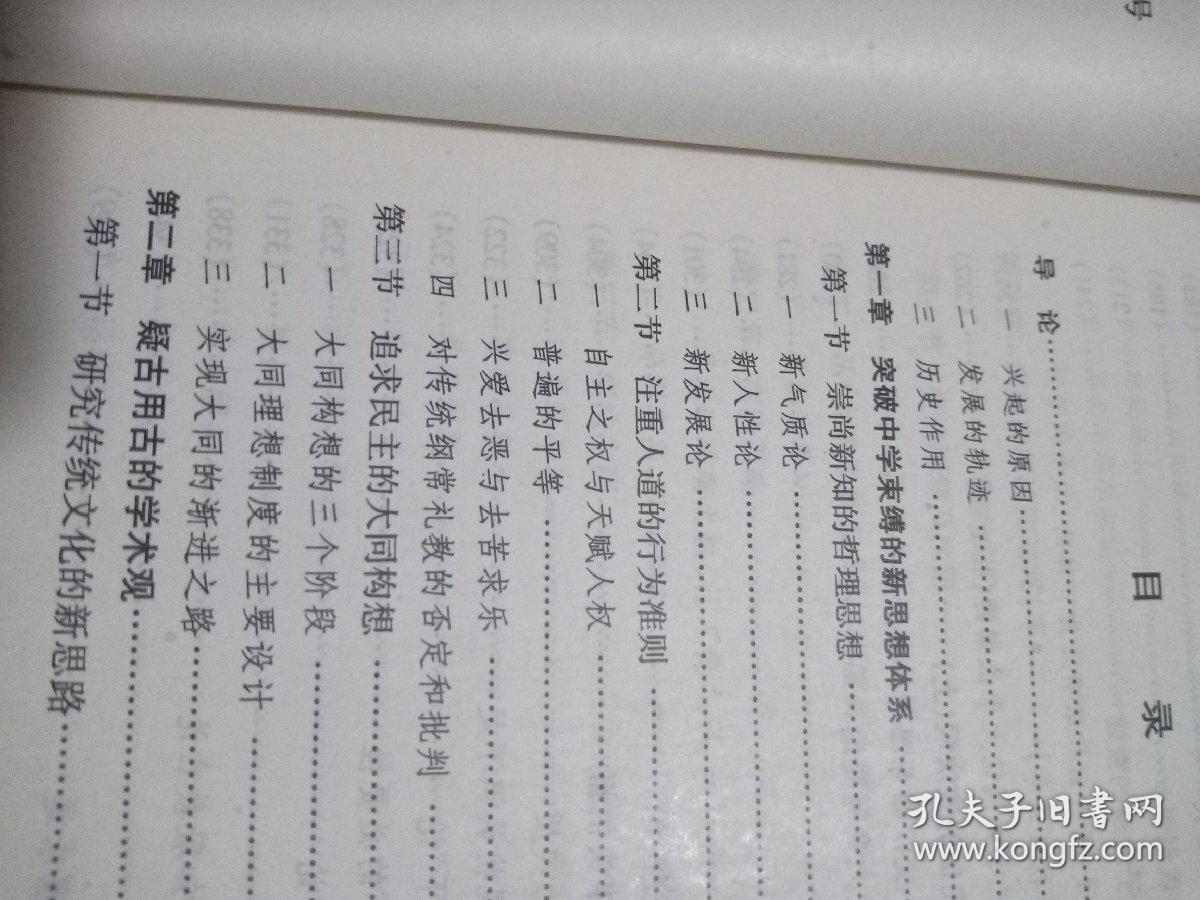 号
目 录
导 论
一 兴起的原因
二 发展的轨迹
三 历史作用
第一章 突破中学束缚的新思想体系
第一节 崇尚新知的哲理思想
一 新气质论
二 新人性论
三 新发展论
第二节 注重人道的行为准则
一 自主之权与天赋人权
二 普遍的平等
三 兴爱去恶与去苦求乐
四 对传统纲常礼教的否定和批判
第三节 追求民主的大同构想
一 大同构想的三个阶段
二 大同理想制度的主要设计
三 实现大同的渐进之路
第二章 疑古用古的学术观
第一节 研究传统文化的新思路
孔夫子旧书网
www.kongfz.com